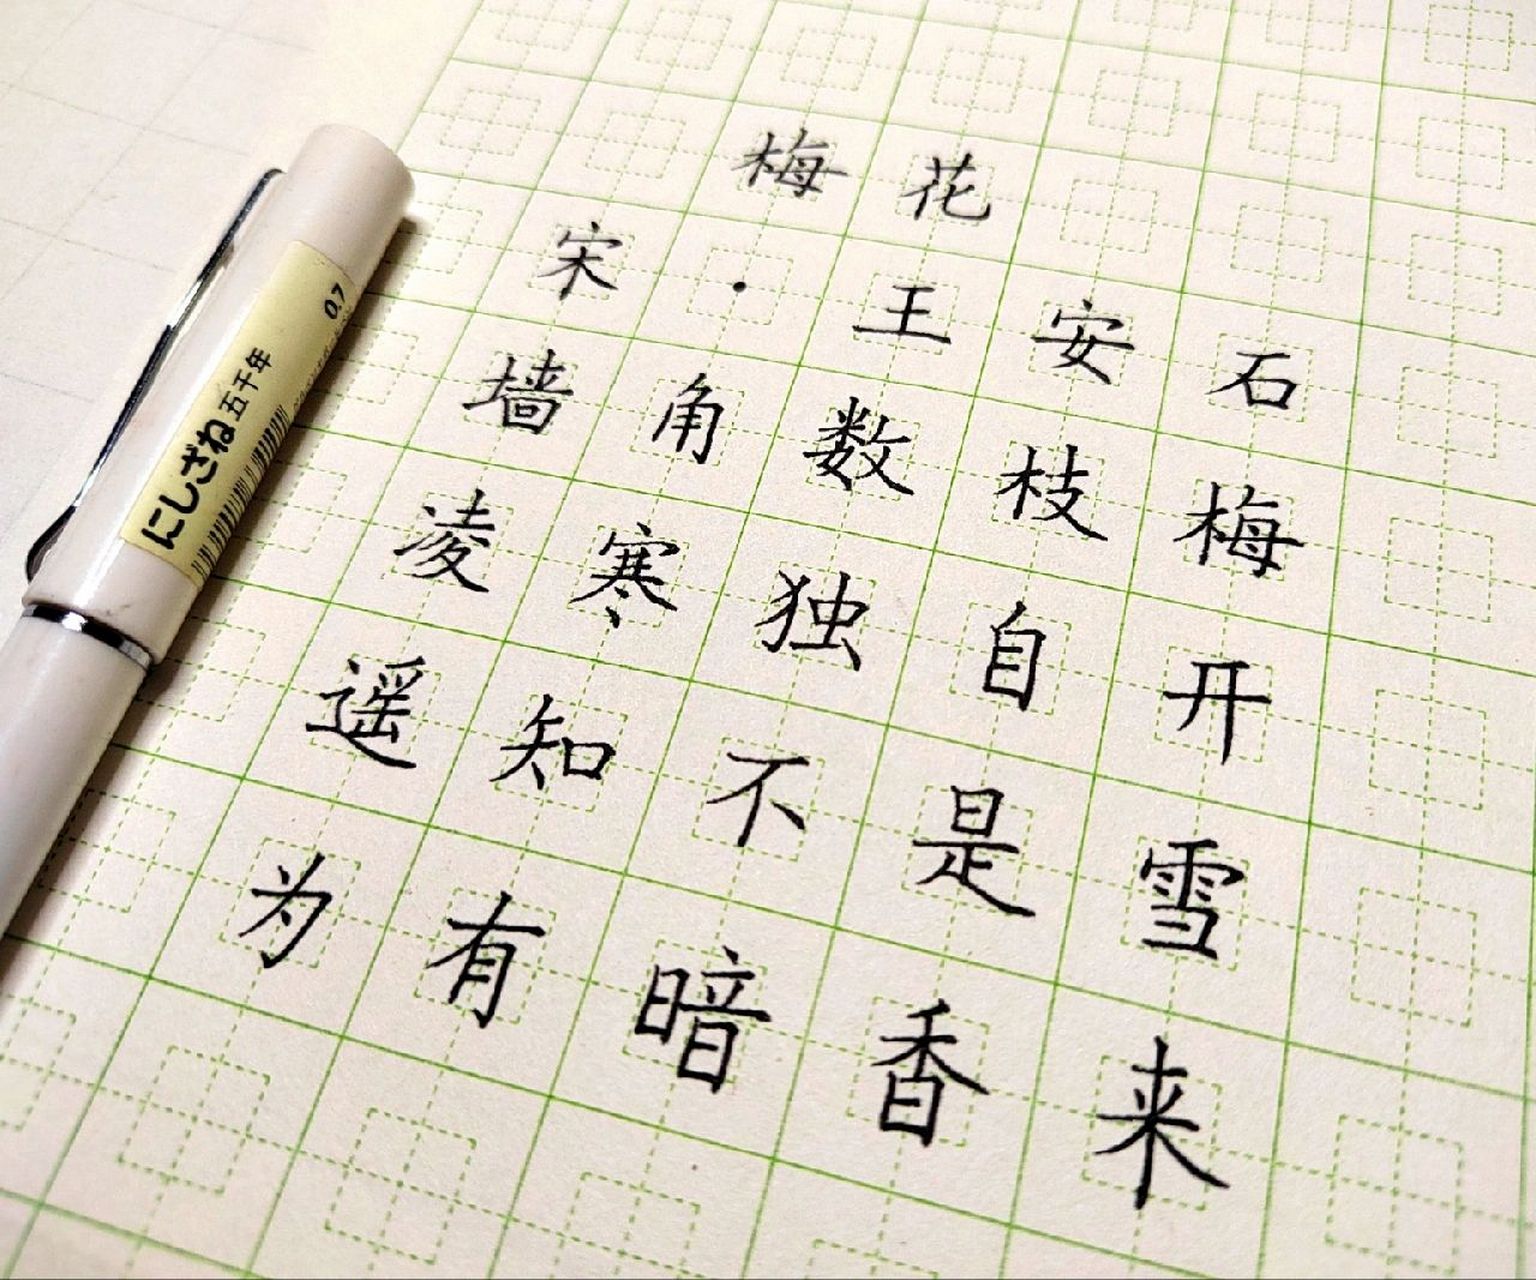 梅花
宋·王安石
墙角数枝梅
凌寒独自开
遥知不是雪
为有暗香来
にしざね 五千年 0.7